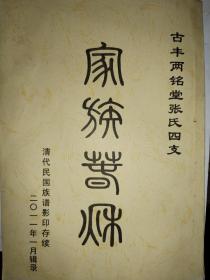 古丰两铭堂张氏四支
家族春秋
清代民国族谱影印存续
二〇一一年一月辑录